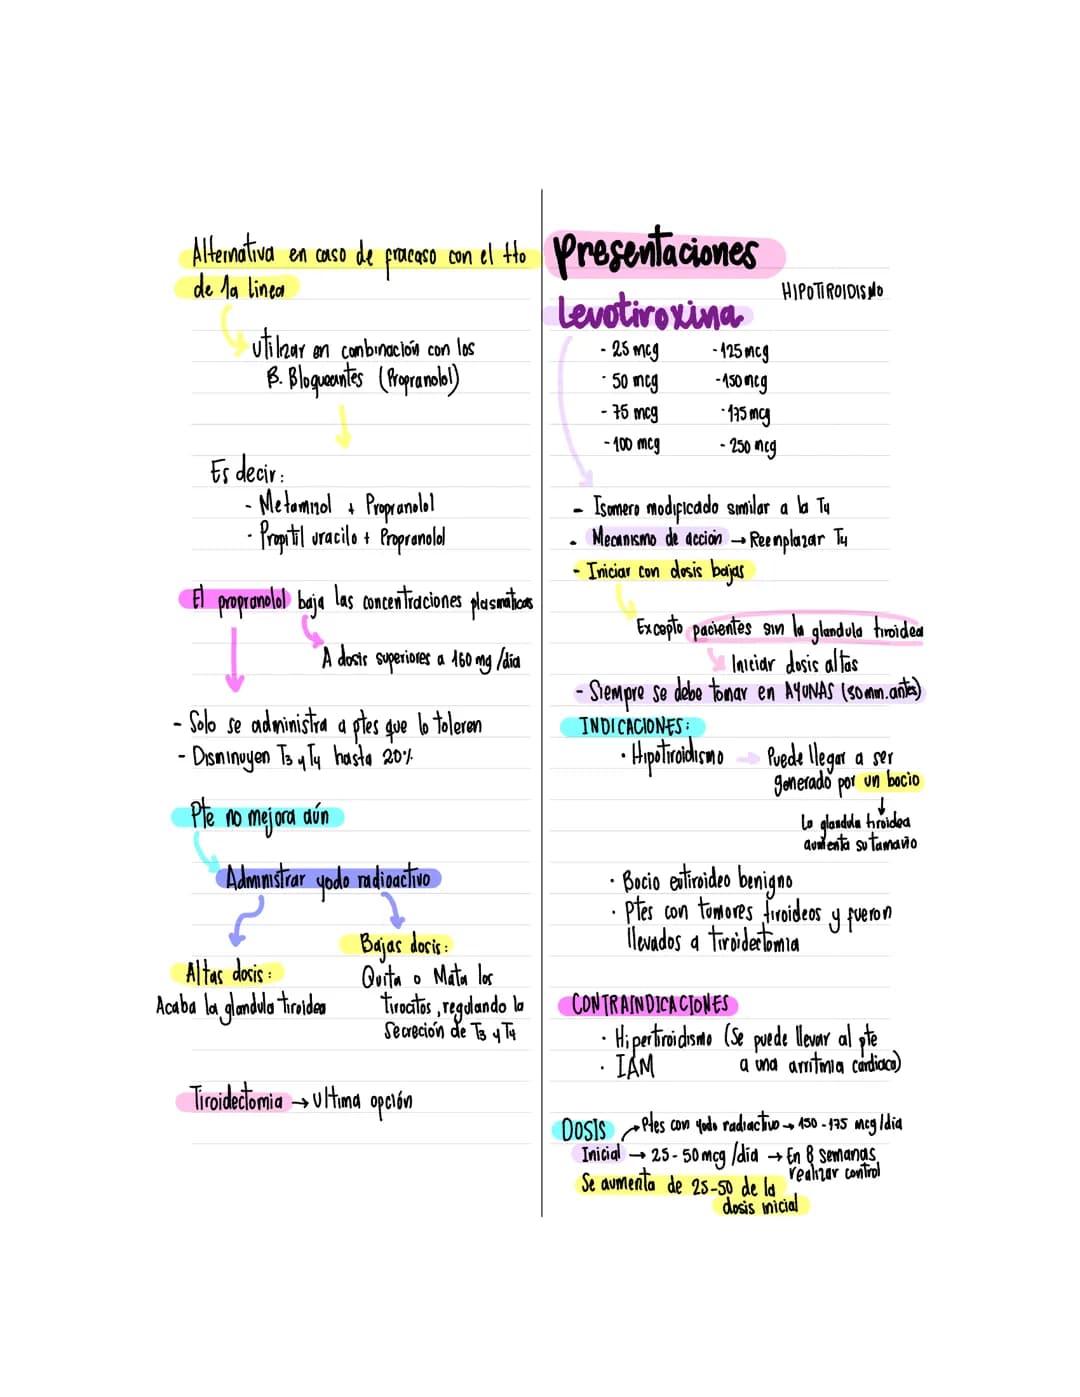 Alternativa en caso de fracaso con el tto
de 1a linea
Utilizar en combinación con los
B. Bloqueantes (Propranolol)
Es decir:
- Metamizol + Propranolol
- Propiltil uracilo + Propranolol
El propranolol baja las concentraciones plasmáticas
A dosis superiores a 160 mg/día
- Solo se administra a ptes que lo toleren
- Disminuyen T3 y T4 hasta 20%
Pte no mejora aún
Administrar yodo radioactivo
Altas dosis:
Acaba la glandula tiroidea
Bajas dosis:
Quita o Mata los
tirocitos, regulando la
Secreción de T3 y T4
Tiroidectomia → Ultima opción
Presentaciones
HIPOTIROIDISMO
Levotiroxina
- 25 mcg - 125 mcg
- 50 mcg - 150 mcg
- 75 mcg - 175 mcg
- 100 mcg - 250 mcg
- Isomero modificado similar a la T4
- Mecanismo de acción → Reemplazar T4
- Iniciar con dosis bajas
Excepto pacientes sin la glandula tiroidea
Iniciar dosis altas
- Siempre se debe tomar en AYUNAS (30 min. antes)
INDICACIONES:
· Hipotiroidismo → Puede llegar a ser
generado por un bocio
↓
La glandula tiroidea
aumenta su tamaño
· Bocio eutiroideo benigno
· Ptes con tumores tiroideos y fueron
llevados a tiroidectomia
CONTRAINDICACIONES
· Hipertiroidismo (Se puede llevar al pte
a una arritmia cardiaca)
· IAM
DOSIS → Ptes con yodo radiactivo → 150 - 175 mcg/dia
Inicial → 25 - 50 mcg/día → En 8 semanas
realizar control
Se aumenta de 25-50 de la
dosis inicial